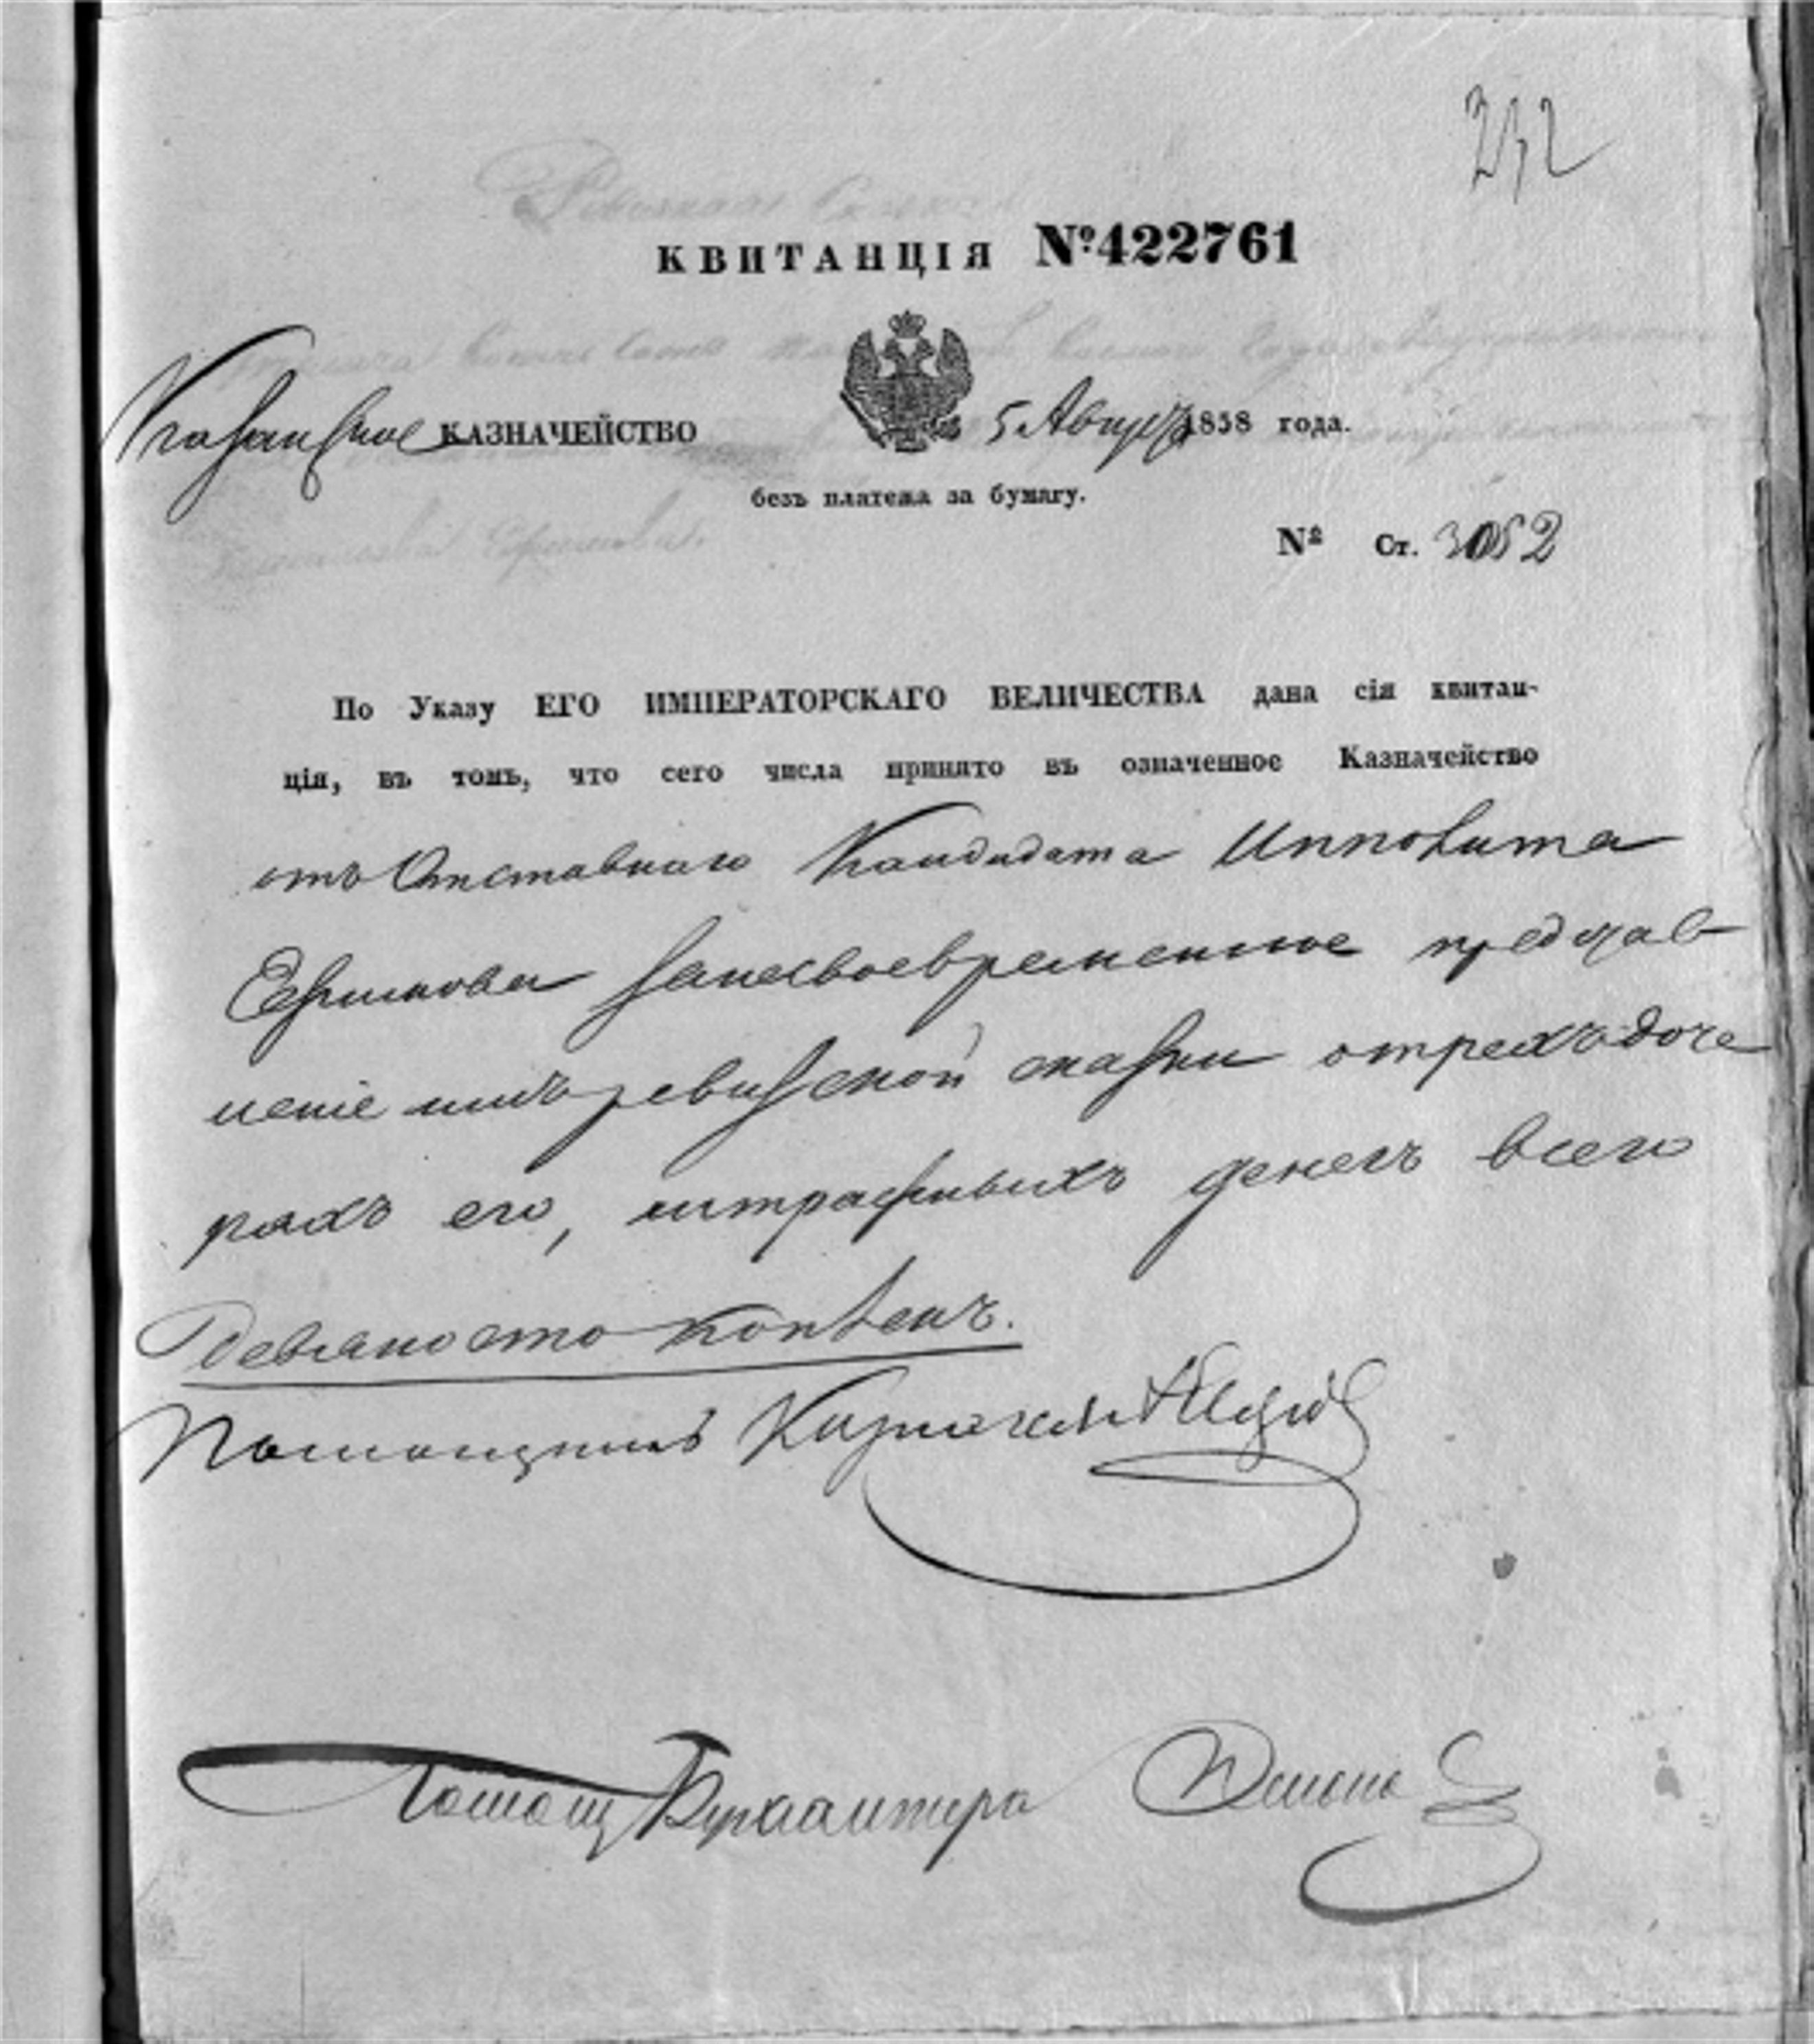 232
КВИТАНЦІЯ №422761
Казанское КАЗНАЧЕЙСТВО 5 Августа 1858 года.
безъ платежа за бумагу.
№ Ст. 3052
По Указу ЕГО ИМПЕРАТОРСКАГО ВЕЛИЧЕСТВА дана сія квитан-
ція, въ томъ, что сего числа принято въ означенное Казначейство
отъ Отставнаго Кандидата Ипполита
занесвоевременное представ
леніе имъ ревизской сказки отрехъ доче
ряхъ его, штрафныхъ денегъ всего
девяносто копѣекъ.
Помощникъ Казначея
Помощ Бухгалтера